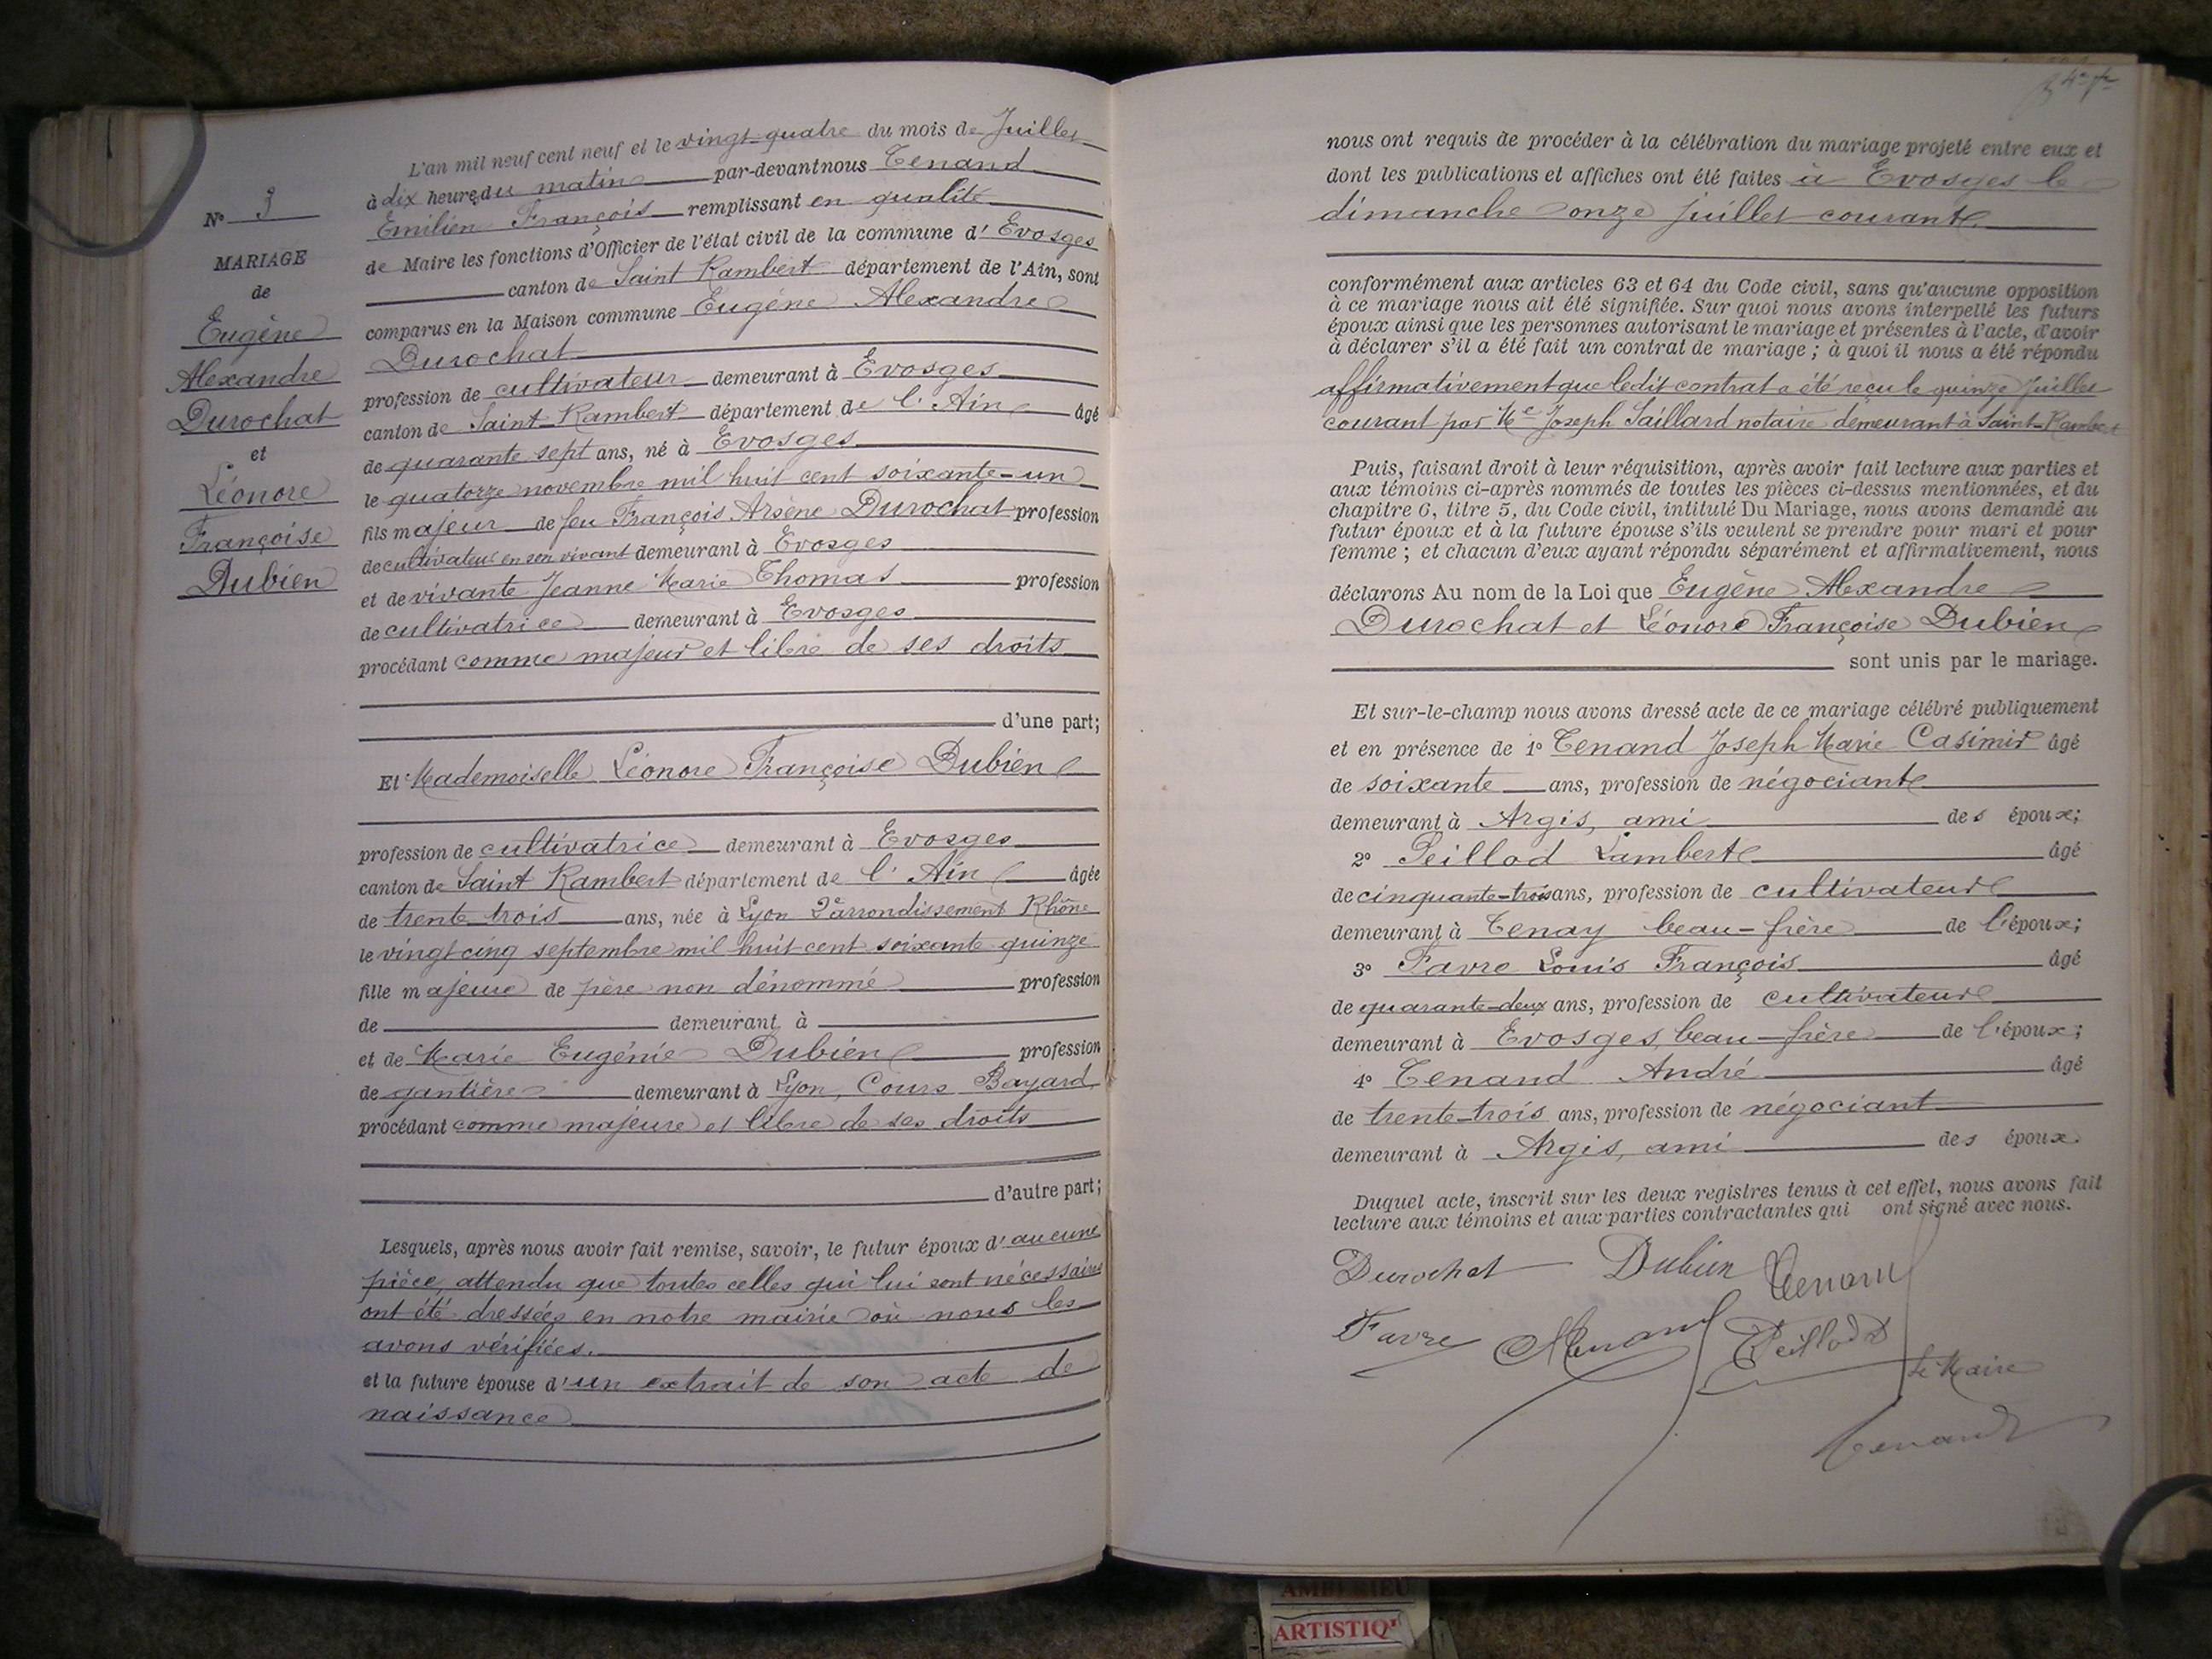 N° 3
MARIAGE
de
Eugène
Alexandre
Durochat
et
Léonore
Françoise
Dubien
L'an mil neuf cent neuf et le vingt quatre du mois de Juillet
à dix heures du matin par-devant nous Tenand
Emilien François remplissant en qualité
de Maire les fonctions d'Officier de l'état civil de la commune d' Evosges
canton de Saint Rambert département de l'Ain, sont
comparus en la Maison commune Eugène Alexandre
Durochat
profession de cultivateur demeurant à Evosges
canton de Saint-Rambert département de l'Ain âgé
de quarante sept ans, né à Evosges
le quatorze novembre mil huit cent soixante-un
fils majeur de feu François Arsène Durochat profession
de cultivateur en son vivant demeurant à Evosges
et de vivante Jeanne Marie Thomas profession
de cultivatrice demeurant à Evosges
procédant comme majeur et libre de ses droits
d'une part;
Et Mademoiselle Léonore Françoise Dubien
profession de cultivatrice demeurant à Evosges
canton de Saint Rambert département de l'Ain âgée
de trente trois ans, née à Lyon 2e arrondissement Rhône
le vingt cinq septembre mil huit cent soixante quinze
fille majeure de père non dénommé profession
de demeurant à
et de Marie Eugénie Dubien profession
de gantière demeurant à Lyon, Cours Bayard
procédant comme majeure et libre de ses droits
d'autre part;
Lesquels, après nous avoir fait remise, savoir, le futur époux d'aucune
pièce, attendu que toutes celles qui lui sont nécessaires
ont été dressées en notre mairie où nous les
avons vérifiées.
et la future épouse d'un extrait de son acte de
naissance
nous ont requis de procéder à la célébration du mariage projeté entre eux et
dont les publications et affiches ont été faites à Evosges le
dimanche onze juillet courant
conformément aux articles 63 et 64 du Code civil, sans qu'aucune opposition
à ce mariage nous ait été signifiée. Sur quoi nous avons interpellé les futurs
époux ainsi que les personnes autorisant le mariage et présentes à l'acte, d'avoir
à déclarer s'il a été fait un contrat de mariage ; à quoi il nous a été répondu
affirmativement que ledit contrat a été reçu le quinze juillet
courant par Me Joseph Saillard notaire demeurant à Saint-Rambert
Puis, faisant droit à leur réquisition, après avoir fait lecture aux parties et
aux témoins ci-après nommés de toutes les pièces ci-dessus mentionnées, et du
chapitre 6, titre 5, du Code civil, intitulé Du Mariage, nous avons demandé au
futur époux et à la future épouse s'ils veulent se prendre pour mari et pour
femme ; et chacun d'eux ayant répondu séparément et affirmativement, nous
déclarons Au nom de la Loi que Eugène Alexandre
Durochat et Léonore Françoise Dubien
sont unis par le mariage.
Et sur-le-champ nous avons dressé acte de ce mariage célébré publiquement
et en présence de 1° Tenand Joseph Marie Casimir âgé
de soixante ans, profession de négociant
demeurant à Argis, ami des époux;
2° Peillod Lambert âgé
de cinquante-trois ans, profession de cultivateur
demeurant à Tenay beau-frère de l'époux;
3° Favre Louis François âgé
de quarante-deux ans, profession de cultivateur
demeurant à Evosges, beau-frère de l'époux;
4° Tenand André âgé
de trente-trois ans, profession de négociant
demeurant à Argis, ami des époux.
Duquel acte, inscrit sur les deux registres tenus à cet effet, nous avons fait
lecture aux témoins et aux parties contractantes qui ont signé avec nous.
Durochat Dubien Tenand
Favre ATenand Peillod
Le Maire
Tenand
AMBERIEU
ARTISTIQ